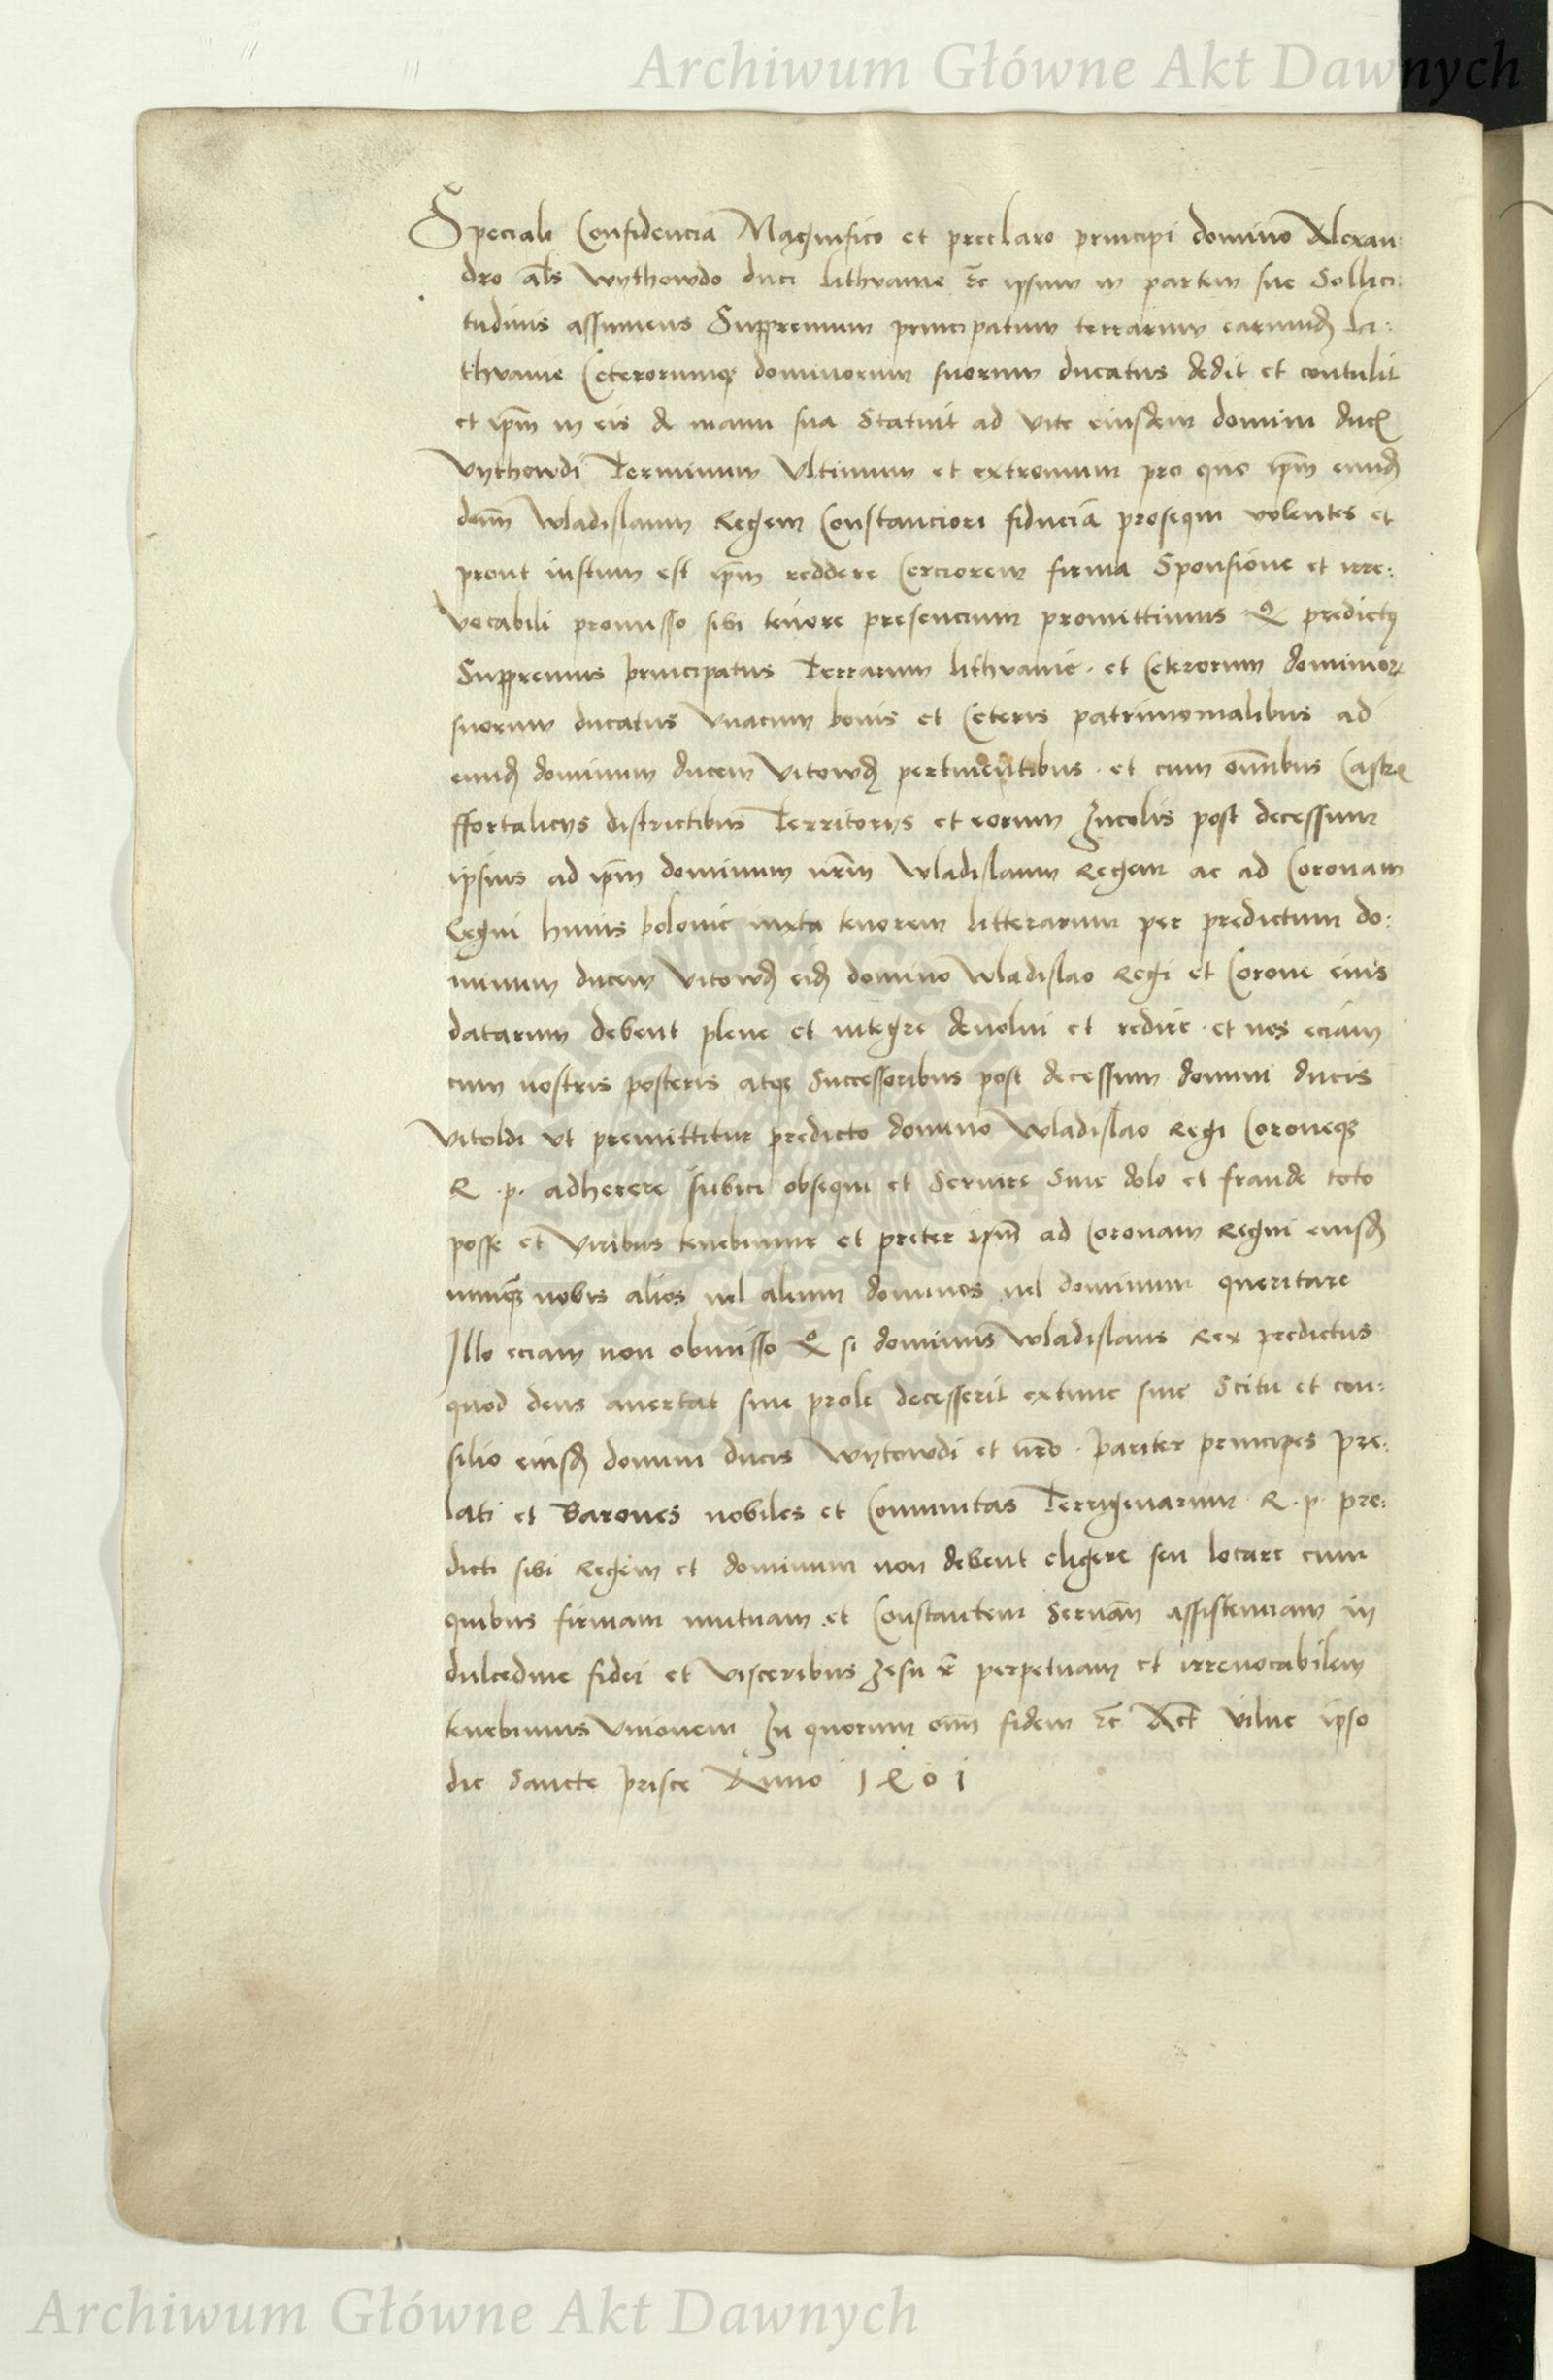 Archiwum Główne Akt Dawnych
Speciali Confidencia Magnifico et preclaro principi domino Alexan:
dro als Wythowdo duci Lithvanie etc ipsum in partem sue Sollici:
tudinis assumens Suppremum principatum terrarum earumd Li:
thvanie Ceterorumq dominorum suorum ducatus dedit et contulit
et ipm in eis de manu sua Statuit ad vite eiusdem domini ducis
Vythowdi Terminum Vltimum et extremum pro quo ipm eund
dnm Wladislaum Regem Constanciori fiducia prosequi volentes et
prout iustum est ipm reddere Cerciorem firma Sponsione et irre:
vocabili promisso sibi tenore presencium promittimus Q predictus
Suppremus principatus Terrarum Lithvanie. et Ceterorum dominor
suorum ducatus Vnacum bonis et Ceteris patrimonialibus ad
eund dominum ducem Vitowd pertinentibus. et cum omnibus Castris
ffortalicys districtibus Territorys et eorum Incolis post decessum
ipsius ad ipm dominum nrm Wladislaum Regem ac ad Coronam
Regni huius polonie iuxta tenorem litterarum per predictum do:
minum ducem Vitowd eid domino Wladislao Regi et Corone eius
datarum debent plene et integre devolui et redire. et nos eciam
cum nostris posteris atq Successoribus post decessum domini ducis
Vitoldi vt premittitur predicto domino Wladislao Regi Coroneq
R .p. adherere subici obsequi et Servire Sine dolo et fraude toto
posse et Viribus tenebimur et preter ipm ad Coronam Regni eiusd
nunq nobis alios uel alium dominos uel dominum queritare
Illo eciam non obmisso Q si dominus Wladislaus Rex predictus
quod deus avertat sine prole decesserit extunc sine Scitu et con:
silio eiusd domini ducis Wytowdi et nro. pariter principes pre:
lati et Barones nobiles et Comunitas Terrigenarum R .p. pre:
dicti sibi Regem et dominum non debent eligere seu locare cum
quibus firmam mutuam et Constantem Servam assistenciam in
dulcedine fidei et Visceribus Jesu x perpetuam et irrevocabilem
tenebimus Vnionem In quorum omn fidem etc Act Vilne ipso
die Sancte prisce Anno 1401
Archiwum Główne Akt Dawnych